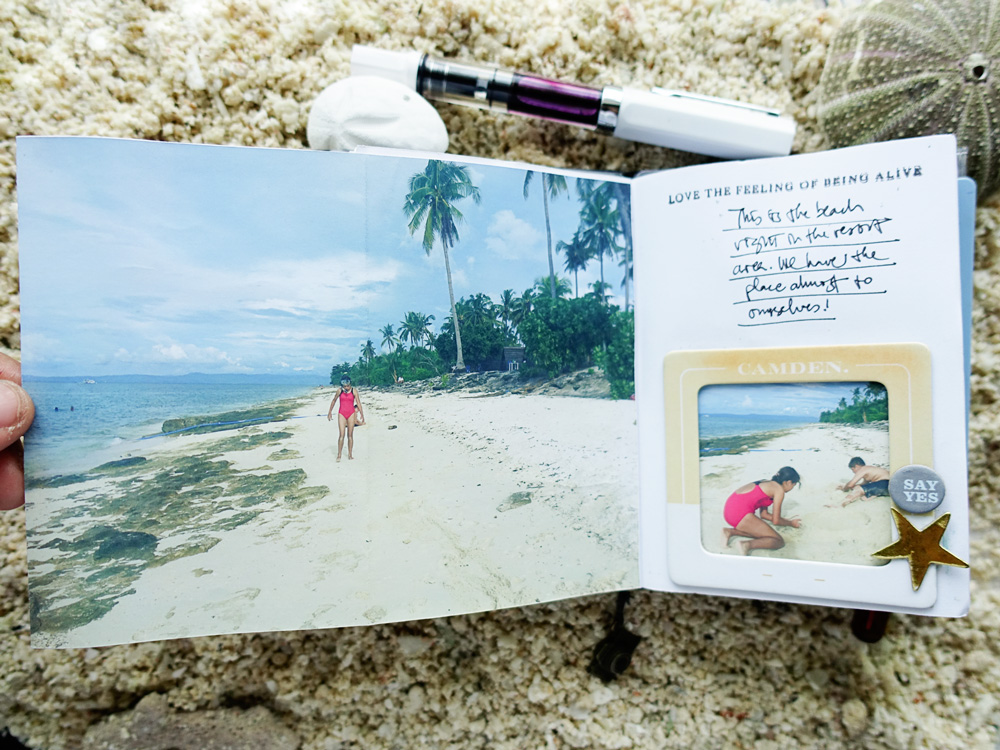 LOVE THE FEELING OF BEING ALIVE
This is the beach
right in the resort
area. We have the
place almost to
ourselves!
CAMDEN.
SAY
YES